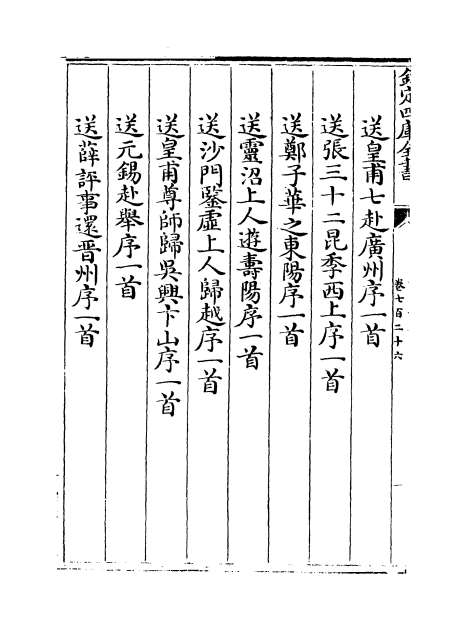 欽定四庫全書
卷七百二十六
送皇甫七赴廣州序一首
送張三十二昆季西上序一首
送鄭子華之東陽序一首
送靈沼上人遊壽陽序一首
送沙門鑒虛上人歸越序一首
送皇甫尊師歸吳興卞山序一首
送元錫赴舉序一首
送薛評事還晋州序一首